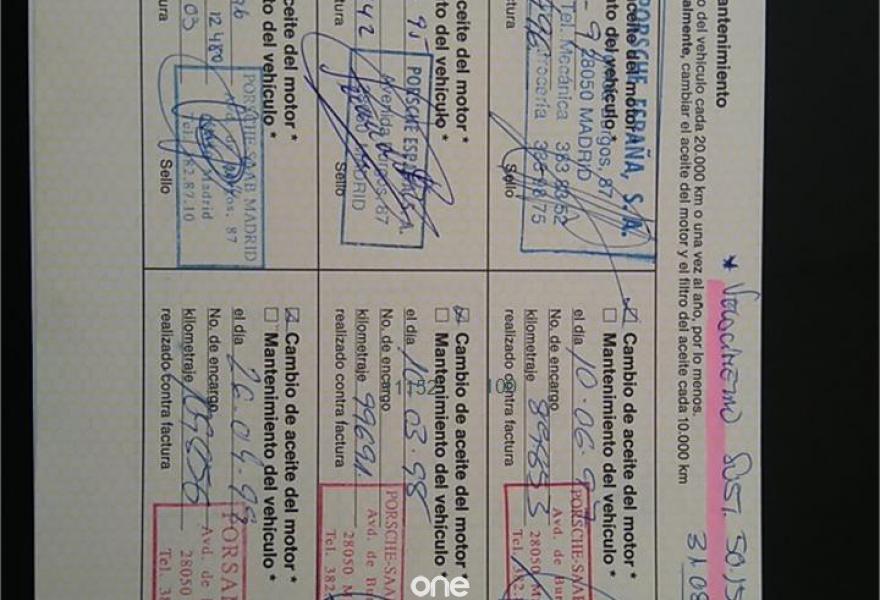 antenimiento
o del vehículo cada 20.000 km o una vez al año, por lo menos.
almente, cambiar el aceite del motor y el filtro del aceite cada 10.000 km
* Velocimetro sust. 50.15
31.08
PORSCHE ESPAÑA, S.A.
aceite del motor *
to del vehículo *
28050 MADRID
Tel. Mecánica 383 83 52
Sello
Cambio de aceite del motor *
Mantenimiento del vehículo *
el día 10-06-97
No. de encargo
kilometraje 89853
realizado contra factura
PORSCHE-SAA
Avd. de Bur
28050 M
Tel. 382.
ceite del motor *
to del vehículo *
95
42
tura
PORSCHE ESPAÑA S.A.
Avenida Burgos 87
MADRID
Sello
Cambio de aceite del motor *
Mantenimiento del vehículo *
el día 16.03.98
No. de encargo
kilometraje 99691
realizado contra factura
PORSCHE-SAA
Avd. de Bu
28050 M
Tel. 382
ceite del motor *
to del vehículo *
96
12480
03
ura
PORSCHE-SAAB MADRID
Avd. de Burgos, 87
Madrid
Tel. 382.87.10
Sello
Cambio de aceite del motor *
Mantenimiento del vehículo *
el día 26.04.99
No. de encargo
kilometraje 109056
realizado contra factura
PORSA
Avd. de
28050
Tel. 3
1152
109
one